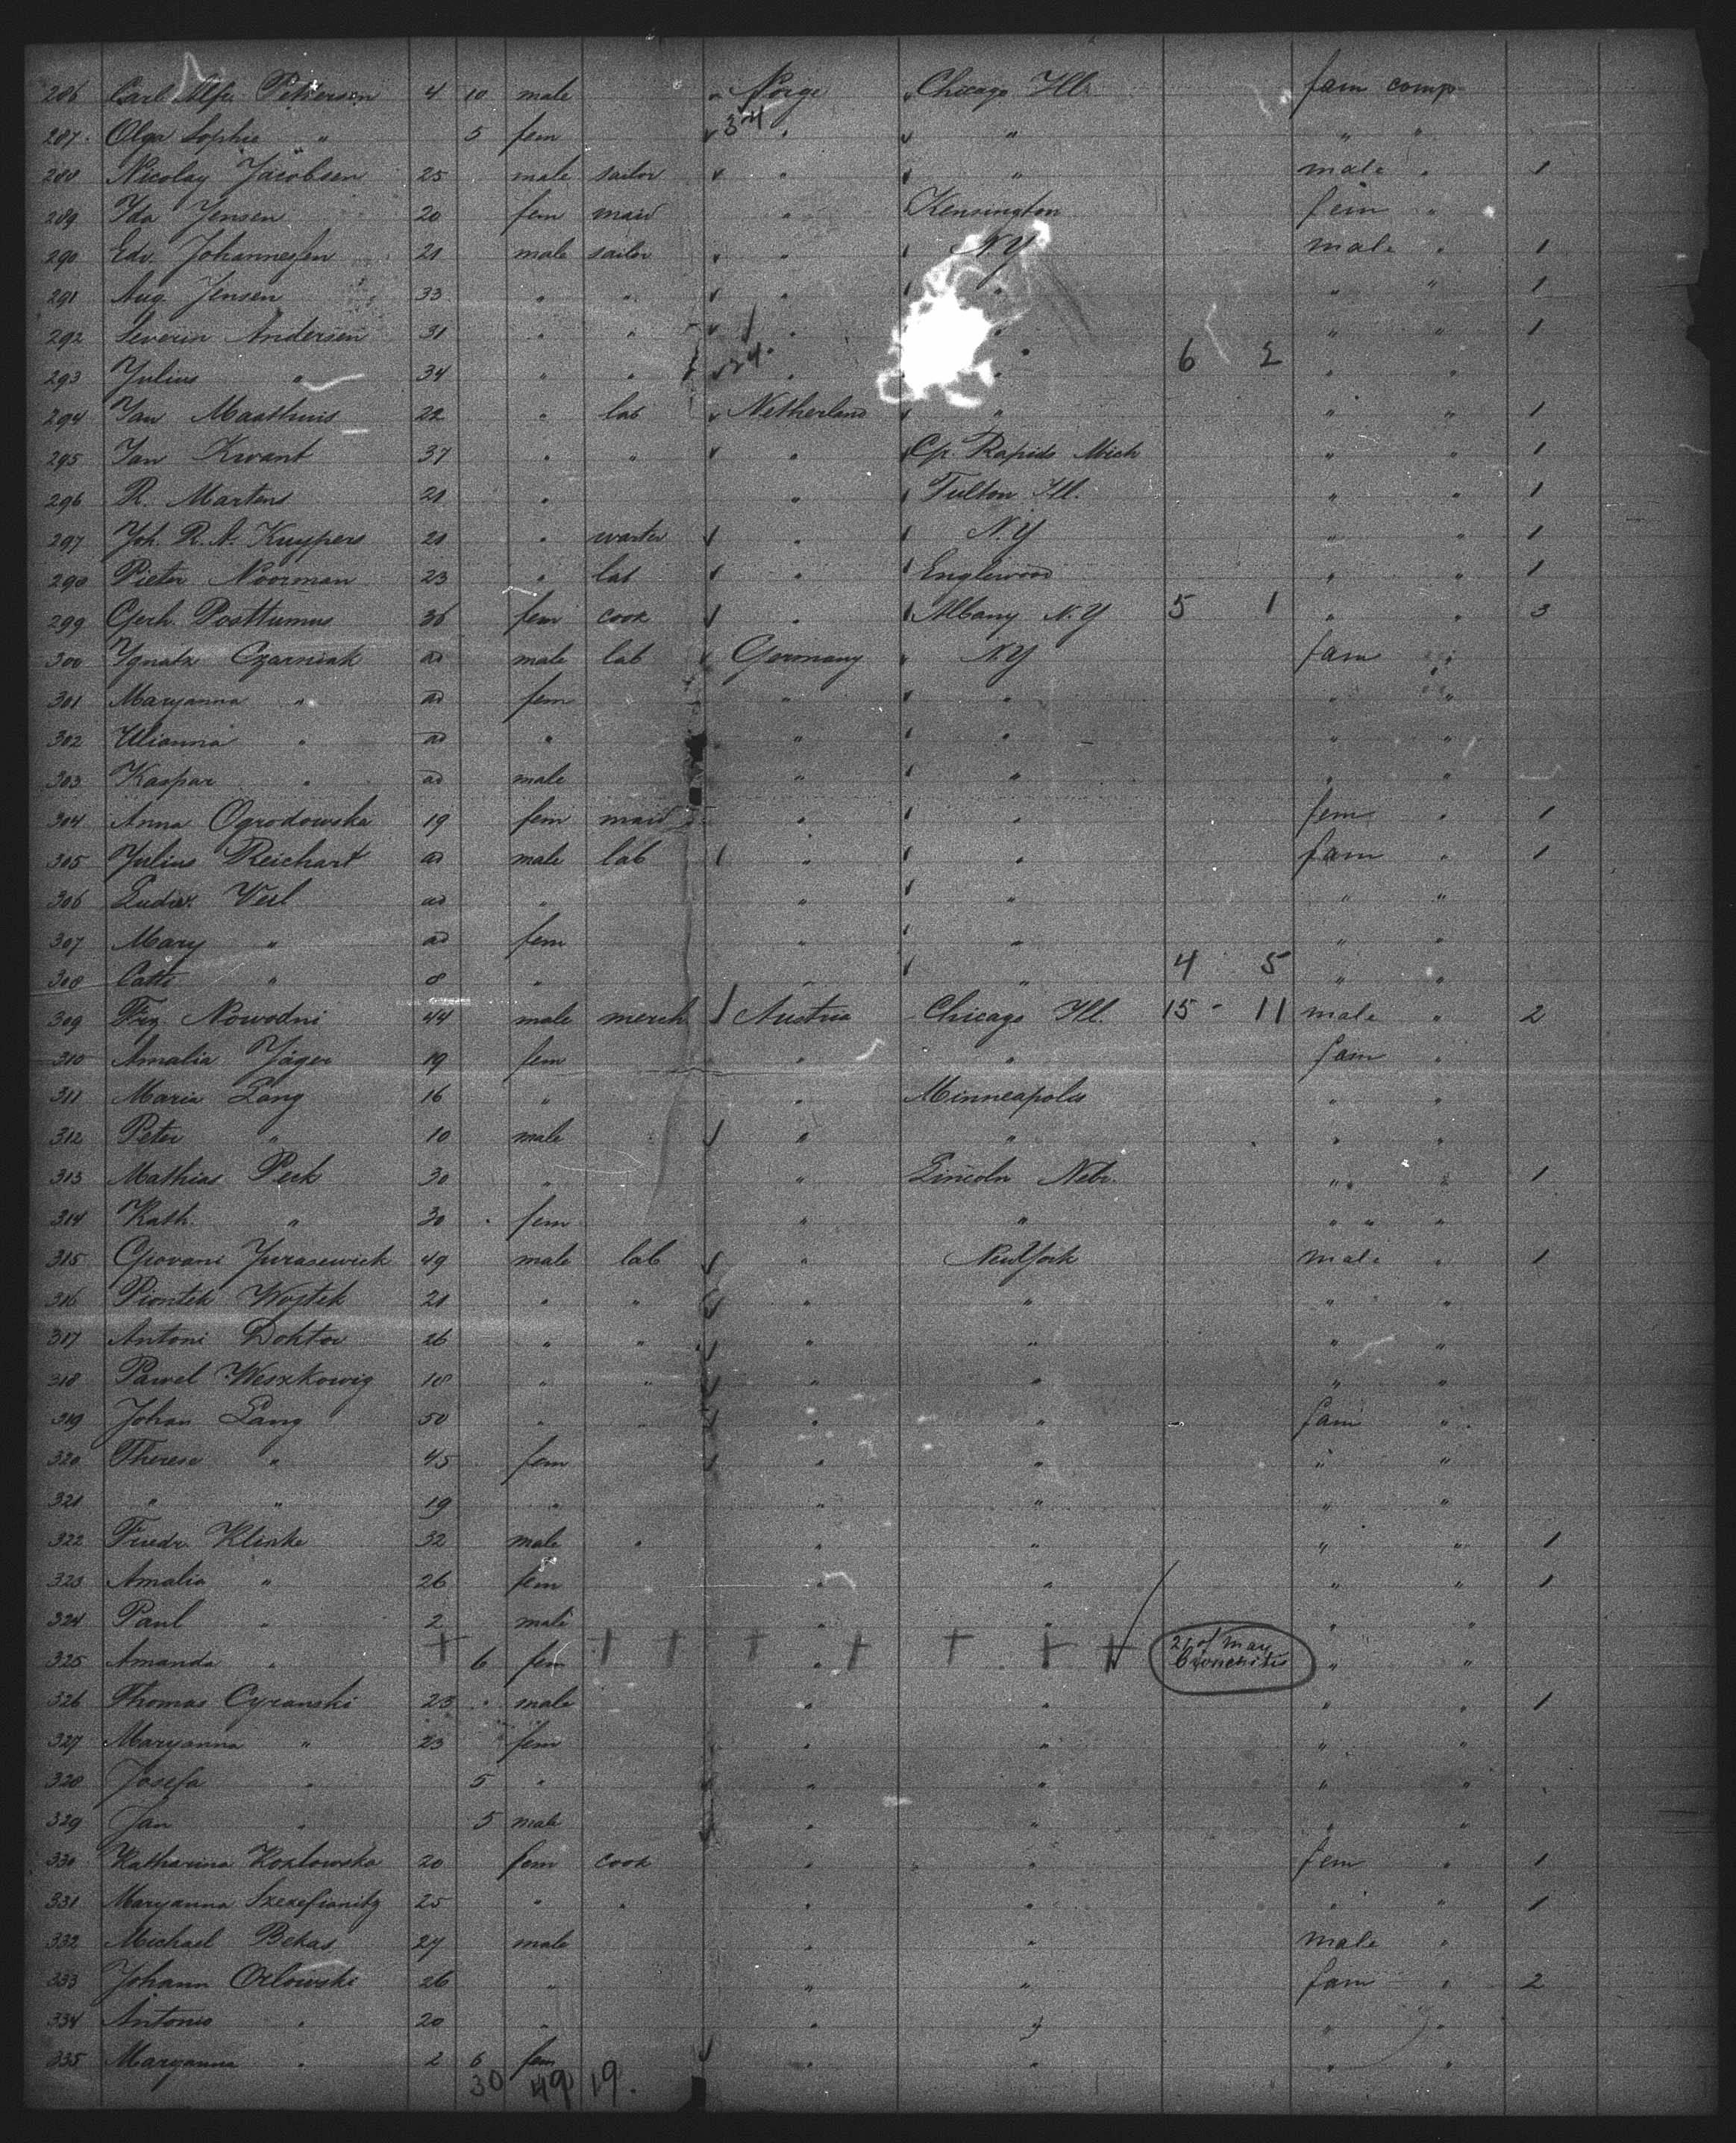 286 Carl Alfr. Pettersen 4 10 male Norge Chicago Ill. fam comp
34
287. Olga Sophie " 5 fem " " " "
288 Nicolay Jacobsen 25 male sailor " " male " 1
289 Ida Jensen 20 fem maid " Kensington fem "
290 Edv. Johannesen 21 male sailor " N.Y male " 1
291 Aug. Jensen 33 " " " " " " 1
292 Severin Andersen 31 " " " " " " 1
24. 6 2
293 Julius " 34 " " " " " "
294 Jan Maathuis 22 " lab Netherland " " " 1
295 Jan Kwant 37 " " " Gr. Rapids Mich " " 1
296 R. Martens 21 " " Fulton Ill. " " 1
297 Joh. R. A. Kuypers 21 " " N.Y " " 1
298 Pieter Noorman 23 " lab " Englewood " " 1
299 Gerh. Posttumus 36 fem cook " Albany N.Y 5 1 " " 3
300 Ignatz Czarniak ad male lab Germany N.Y fam "
301 Maryanna " ad fem " " " "
302 Ulianna " ad " " " " "
303 Kaspar " ad male " " " "
304 Anna Ogrodowska 19 fem maid " " fem " 1
305 Julius Reichart ad male lab " " fam " 1
306 Ludw. Veil ad " " " " "
307 Mary " ad fem " " " "
308 " 8 " " " 4 5 " "
309 Nowodni 44 male merch Austria Chicago Ill. 15 11 male " 2
310 Amalia Jäger 19 fem " " fam "
311 Maria Lang 16 " " Minneapolis " "
312 Peter " 10 male " " " "
313 Mathias Peck 30 " " Lincoln Nebr. " " 1
314 Kath. " 30 fem " " " " "
315 Giovani Jurasewick 49 male lab " New York male " 1
316 Piontek Wojtek 21 " " " " " "
317 Antoni Doktor 26 " " " " " "
318 Pawel Weszkowig 18 " " " " " "
319 Johan Lang 50 " " " " fam "
320 Therese " 45 fem " " " "
321 " " 19 " " " " "
322 Friedr. Klinke 32 male " " " " " 1
323 Amalia " 26 fem " " " " 1
324 Paul " 2 male " " " "
325 Amanda " 6 fem " 21 of May " "
Bronchitis
326 Thomas Cyranski 23 male " " " " 1
327 Maryanna " 23 fem " " " "
328 Josefa " 5 " " " " "
329 Jan " 5 male " " " "
330 Katharina Kozlowska 20 fem cook " " fem " 1
331 Maryanna 25 " " " " " " 1
332 Michael Bekas 27 male " " male "
333 Johann Orlowski 26 " " " fam " 2
334 Antonio " 20 " " " " "
335 Maryanna " 2 6 fem " " " "
30 49 19.